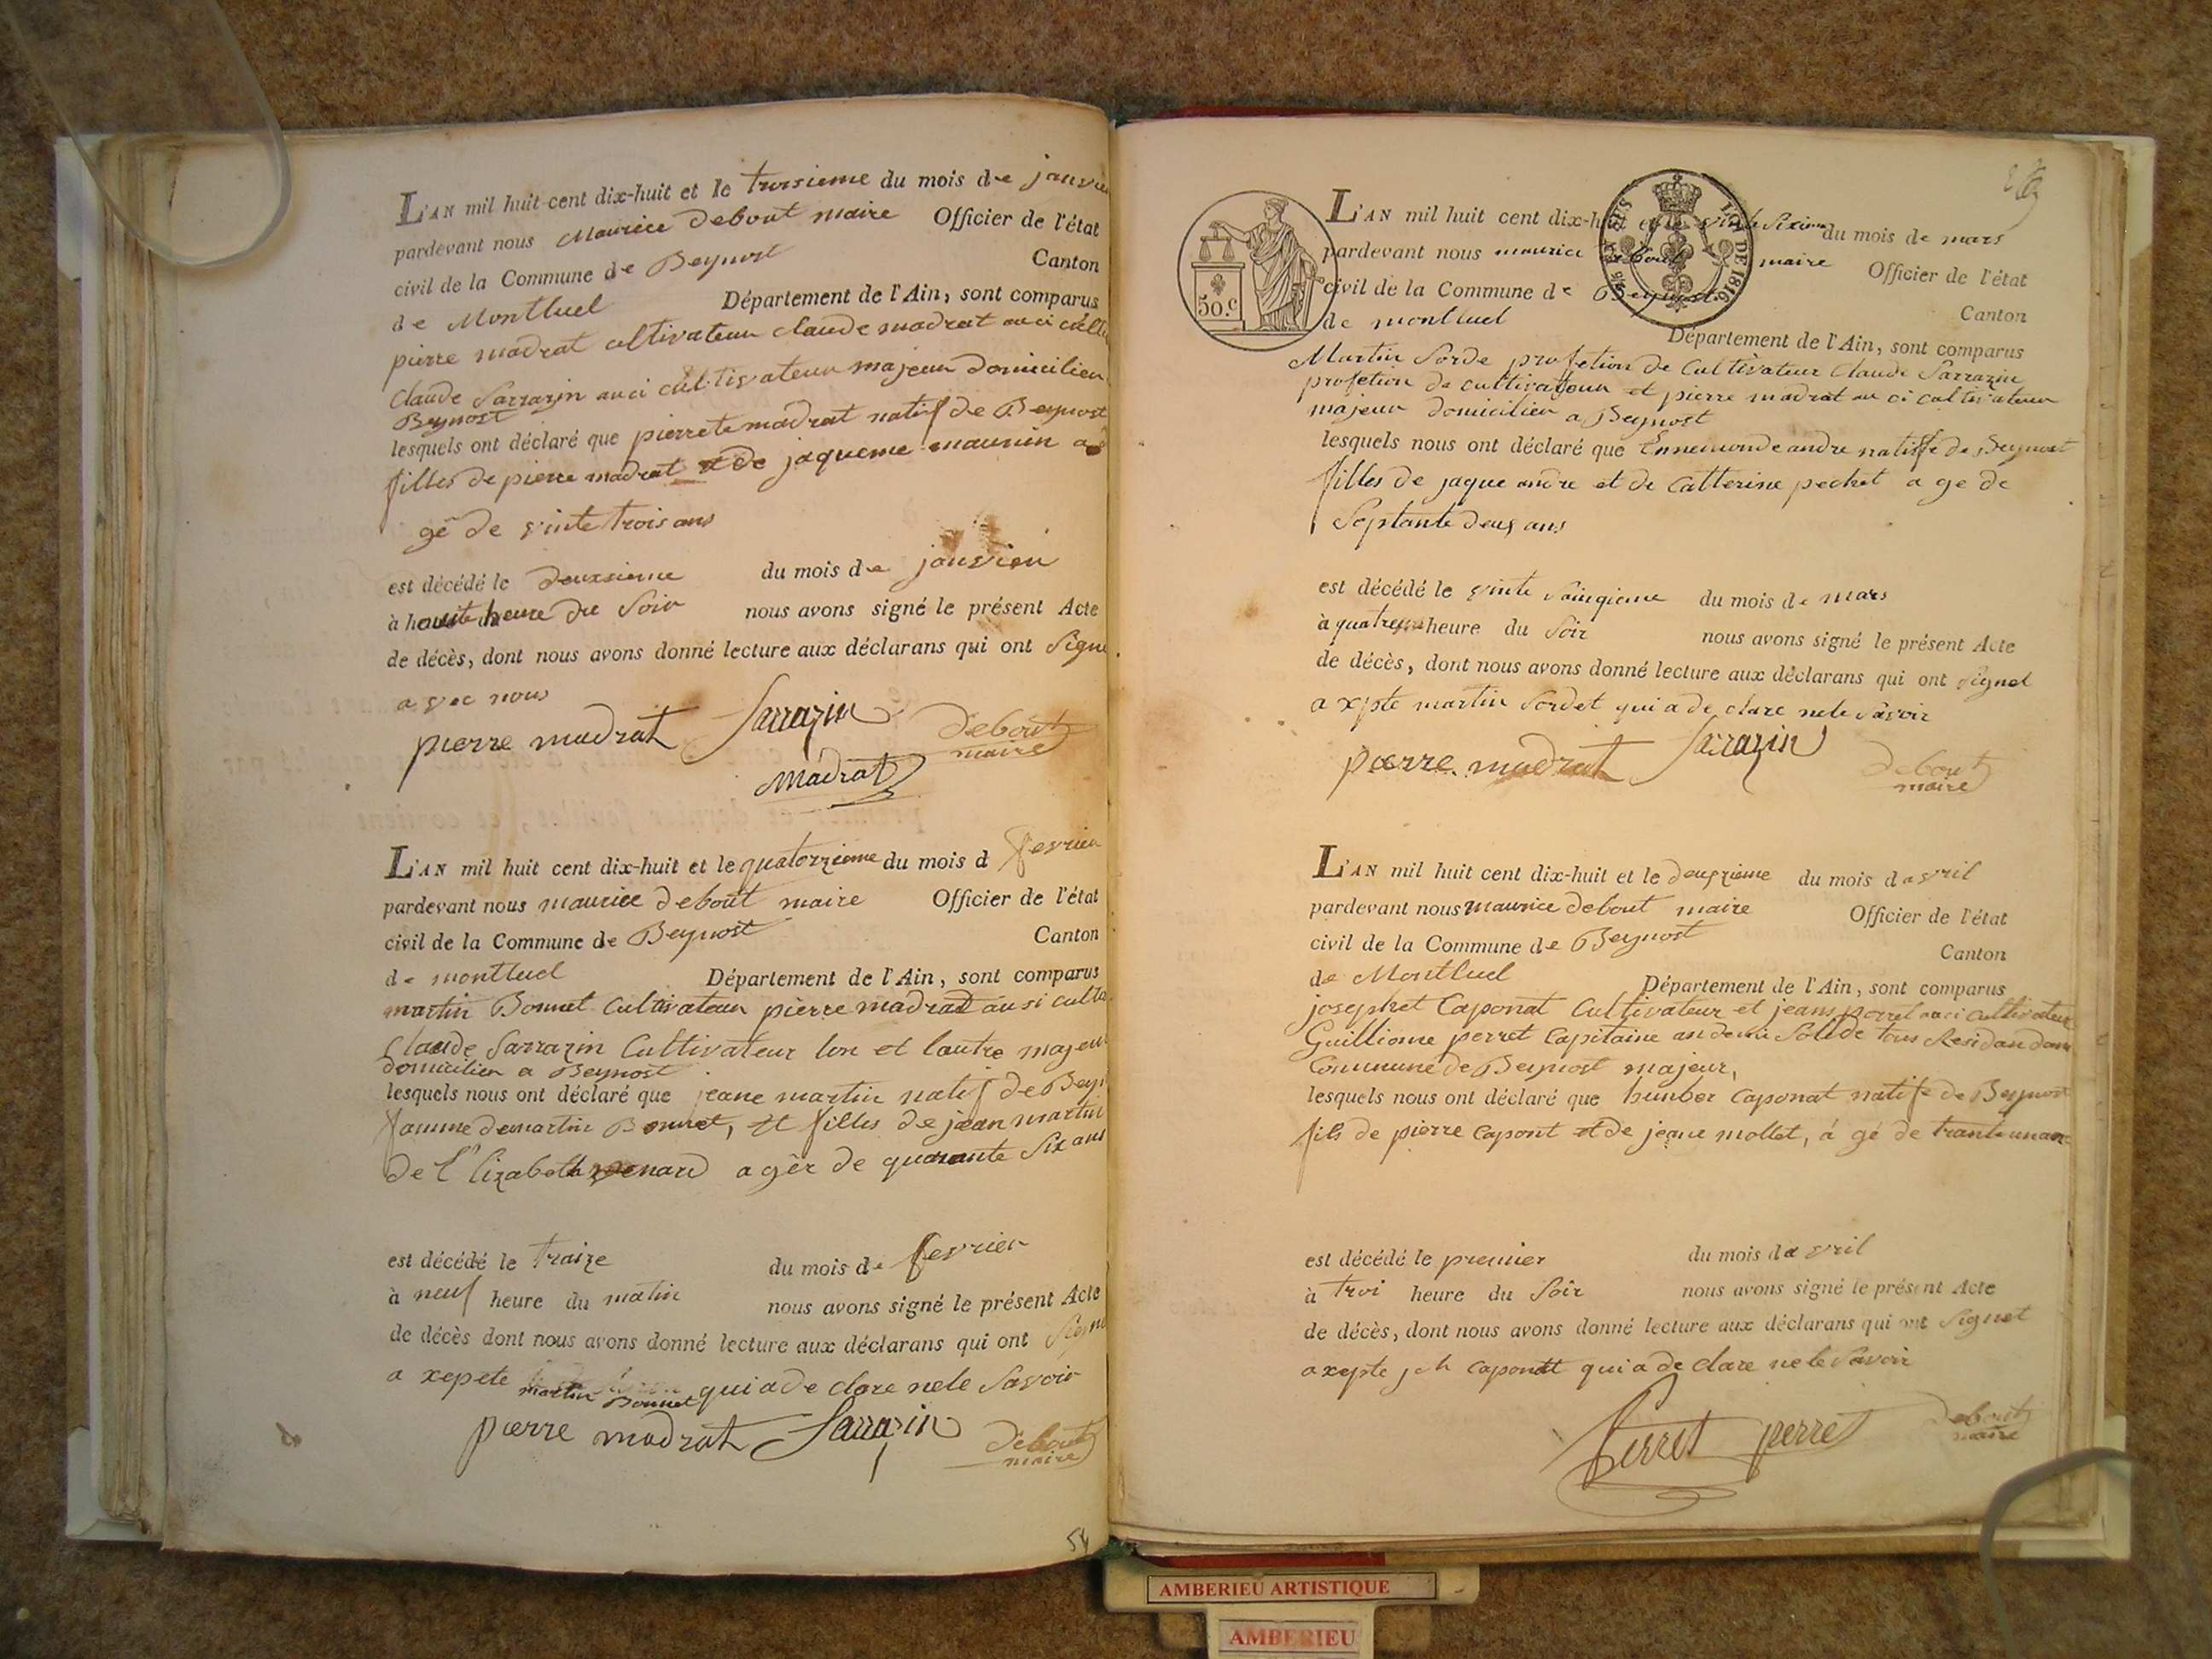 L'AN mil huit cent dix-huit et le troisieme du mois de janvier
pardevant nous Maurice Debout maire Officier de l'état
civil de la Commune de Beynost Canton
de Montluel Département de l'Ain, sont comparus
pierre madrat cultivateur claude madrat auci culti
Claude Sarrazin auci cultivateur majeur domicilier
Beynost
lesquels ont déclaré que pierrete madrat natif de Beynost
filles de pierre madrat et de jaqueme maunin a
gé de vinte trois ans
est décédé le deuxsieme du mois de janvier
à huite heure du Soir nous avons signé le présent Acte
de décès, dont nous avons donné lecture aux déclarans qui ont Signe
avec nous
pierre madrat Sarrazin Debout
maire
Madrat
L'AN mil huit cent dix-huit et le quatorzieme du mois d fevrier
pardevant nous maurice debout maire Officier de l'état
civil de la Commune de Beynost Canton
de montluel Département de l'Ain, sont comparus
martin Bonnet Cultivateur pierre madrat ausi culti
Claude Sarrazin Cultivateur lun et lautre majeur
domicilier a Beynost
lesquels nous ont déclaré que jeane martin natif de Bey
famme de martin Bonnet, et filles de jean martin
de Elizabeth renard a gèr de quarante Six ans
est décédé le traize du mois de fevrier
à neuf heure du matin nous avons signé le présent Acte
de décès dont nous avons donné lecture aux déclarans qui ont Signe
a xepete martin Bonnet qui a de clare nele Savoir
pierre madrat Sarrazin Debout
maire
54
50.C
LOI DE 1816
L'AN mil huit cent dix-huit et le vinte Sixieme du mois de mars
pardevant nous maurice debout maire Officier de l'état
civil de la Commune de Beynost Canton
de montluel Département de l'Ain, sont comparus
Martin Sorde profetion de Cultivateur Claude Sarrazin
profetion de cultivateur et pierre madrat au ci cultivateur
majeur domicilier a Beynost
lesquels nous ont déclaré que Ennemonde andre natiffe de Beynost
filles de jaque andre et de Catterine pechet a ge de
Septante deux ans
est décédé le vinte sainqieme du mois de mars
à quatre heure du Soir nous avons signé le présent Acte
de décès, dont nous avons donné lecture aux déclarans qui ont signet
a xpte martin Sordet qui a de clare nele Savoir
pierre madrat Sarrazin Debout
maire
L'AN mil huit cent dix-huit et le deuxzieme du mois d avril
pardevant nous maurice debout maire Officier de l'état
civil de la Commune de Beynost Canton
de Montluel Département de l'Ain, sont comparus
josephet Caponat Cultivateur et jeans perret auci cultivateur
Guillionne perret Capitaine an demi Solde tous Residan dans
Commune de Beynost majeur,
lesquels nous ont déclaré que hunber Caponat natife de Beynost
fils de pierre Capont et de jeane mollet, á gé de trante un an
est décédé le premier du mois da vril
à troi heure du Soir nous avons signé le présent Acte
de décès, dont nous avons donné lecture aux déclarans qui ont Signet
a xepte jch Caponat qui a de clare ne le Savoir
Perret perret Debout
maire
AMBERIEU ARTISTIQUE
AMBERIEU